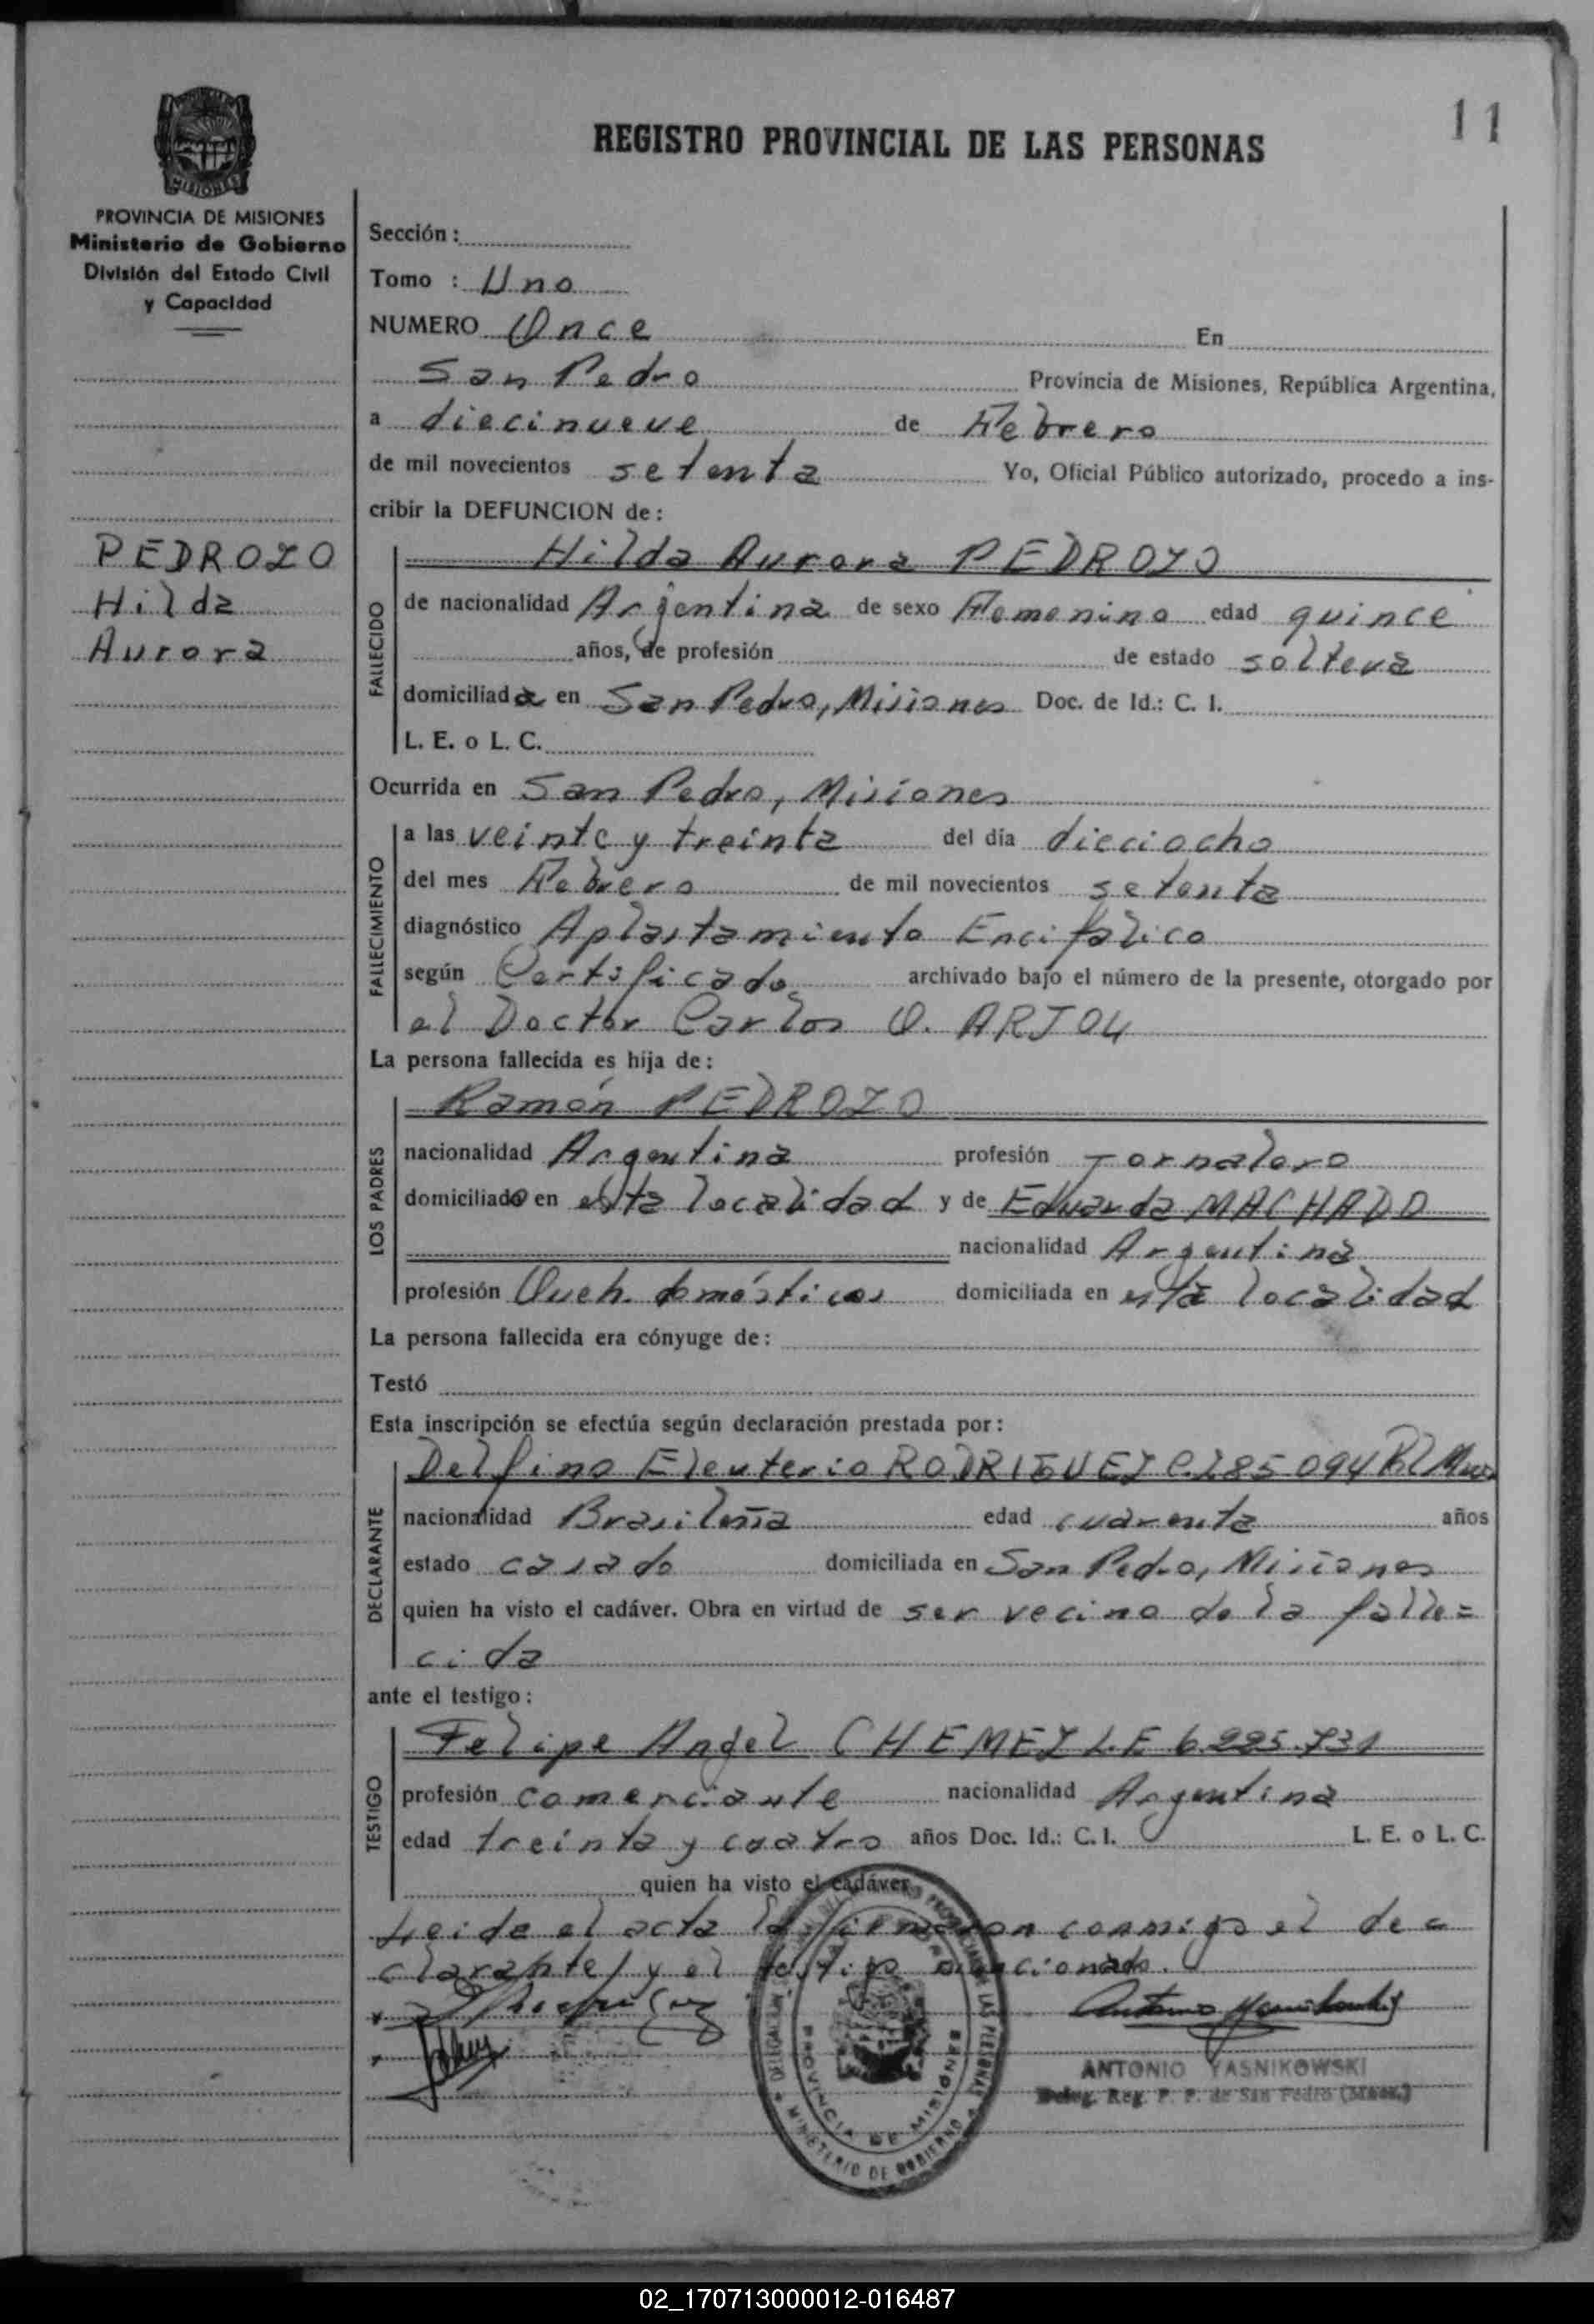 11
REGISTRO PROVINCIAL DE LAS PERSONAS
MISIONES
PROVINCIA DE MISIONES
Ministerio de Gobierno
División del Estado Civil
y Capacidad
PEDROZO
Hilda
Aurora
Sección :
Tomo : Uno
NUMERO Once En
San Pedro Provincia de Misiones, República Argentina,
a diecinueve de Febrero
de mil novecientos setenta Yo, Oficial Público autorizado, procedo a ins-
cribir la DEFUNCION de :
FALLECIDO
Hilda Aurora PEDROZO
de nacionalidad Argentina de sexo Femenino edad quince
años, de profesión de estado soltera
domiciliada en San Pedro, Misiones Doc. de Id.: C. I.
L. E. o L. C.
Ocurrida en San Pedro, Misiones
FALLECIMIENTO
a las veinte y treinta del día dieciocho
del mes Febrero de mil novecientos setenta
diagnóstico Aplastamiento Encifalico
según Certificado archivado bajo el número de la presente, otorgado por
el Doctor Carlos O. ARJOU
La persona fallecida es hija de :
LOS PADRES
Ramón PEDROZO
nacionalidad Argentina profesión Jornalero
domiciliado en esta localidad y de Eduarda MACHADO
nacionalidad Argentina
profesión Queh. domésticos domiciliada en esta localidad
La persona fallecida era cónyuge de :
Testó
Esta inscripción se efectúa según declaración prestada por :
DECLARANTE
Delfino Eleuterio RODRIGUEZ C.I 85 094
nacionalidad Brasileña edad cuarenta años
estado casado domiciliada en San Pedro, Misiones
quien ha visto el cadáver. Obra en virtud de ser vecino de la falle=
cida
ante el testigo :
TESTIGO
Felipe Angel CHEMEZ L.E 6.225.731
profesión comerciante nacionalidad Argentina
edad treinta y cuatro años Doc. Id.: C. I. L. E. o L. C.
quien ha visto el cadáver
Leida el acta la firmaron conmigo el de c
clarante y el testigo mencionado.
PROVINCIA DE MISIONES
MINISTERIO DE GOBIERNO
ANTONIO YASNIKOWSKI
Deleg. Reg. P. P. de San Pedro (Mnes.)
02_170713000012-016487